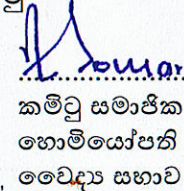 කමිටු සමාජික
හොමියෝපති
වෛද්‍ය සභාව